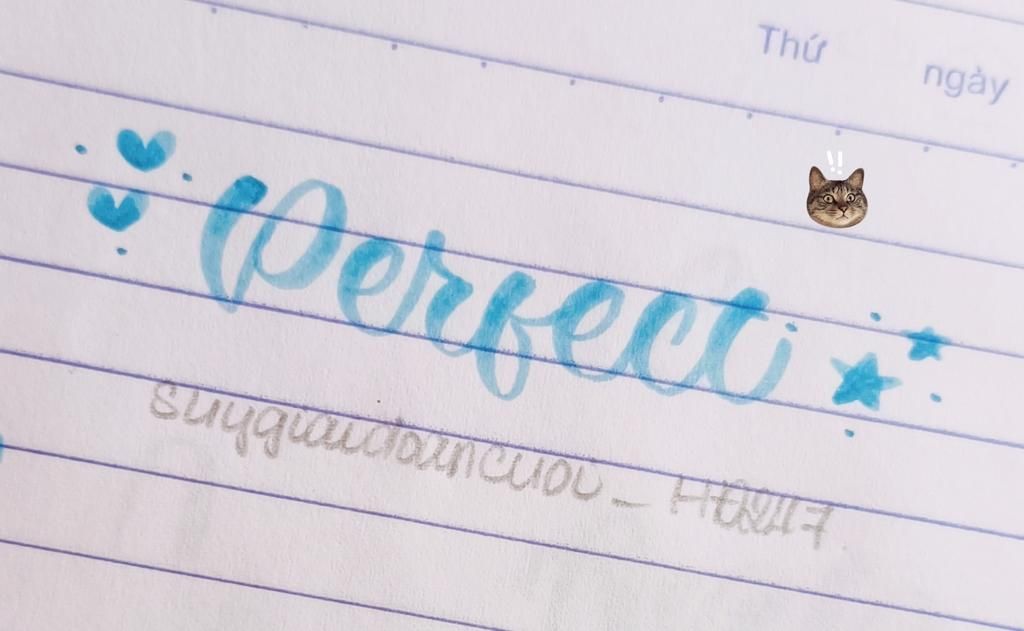 Thứ ngày
Perfect
suygiaidoancuoi_ HĐ247